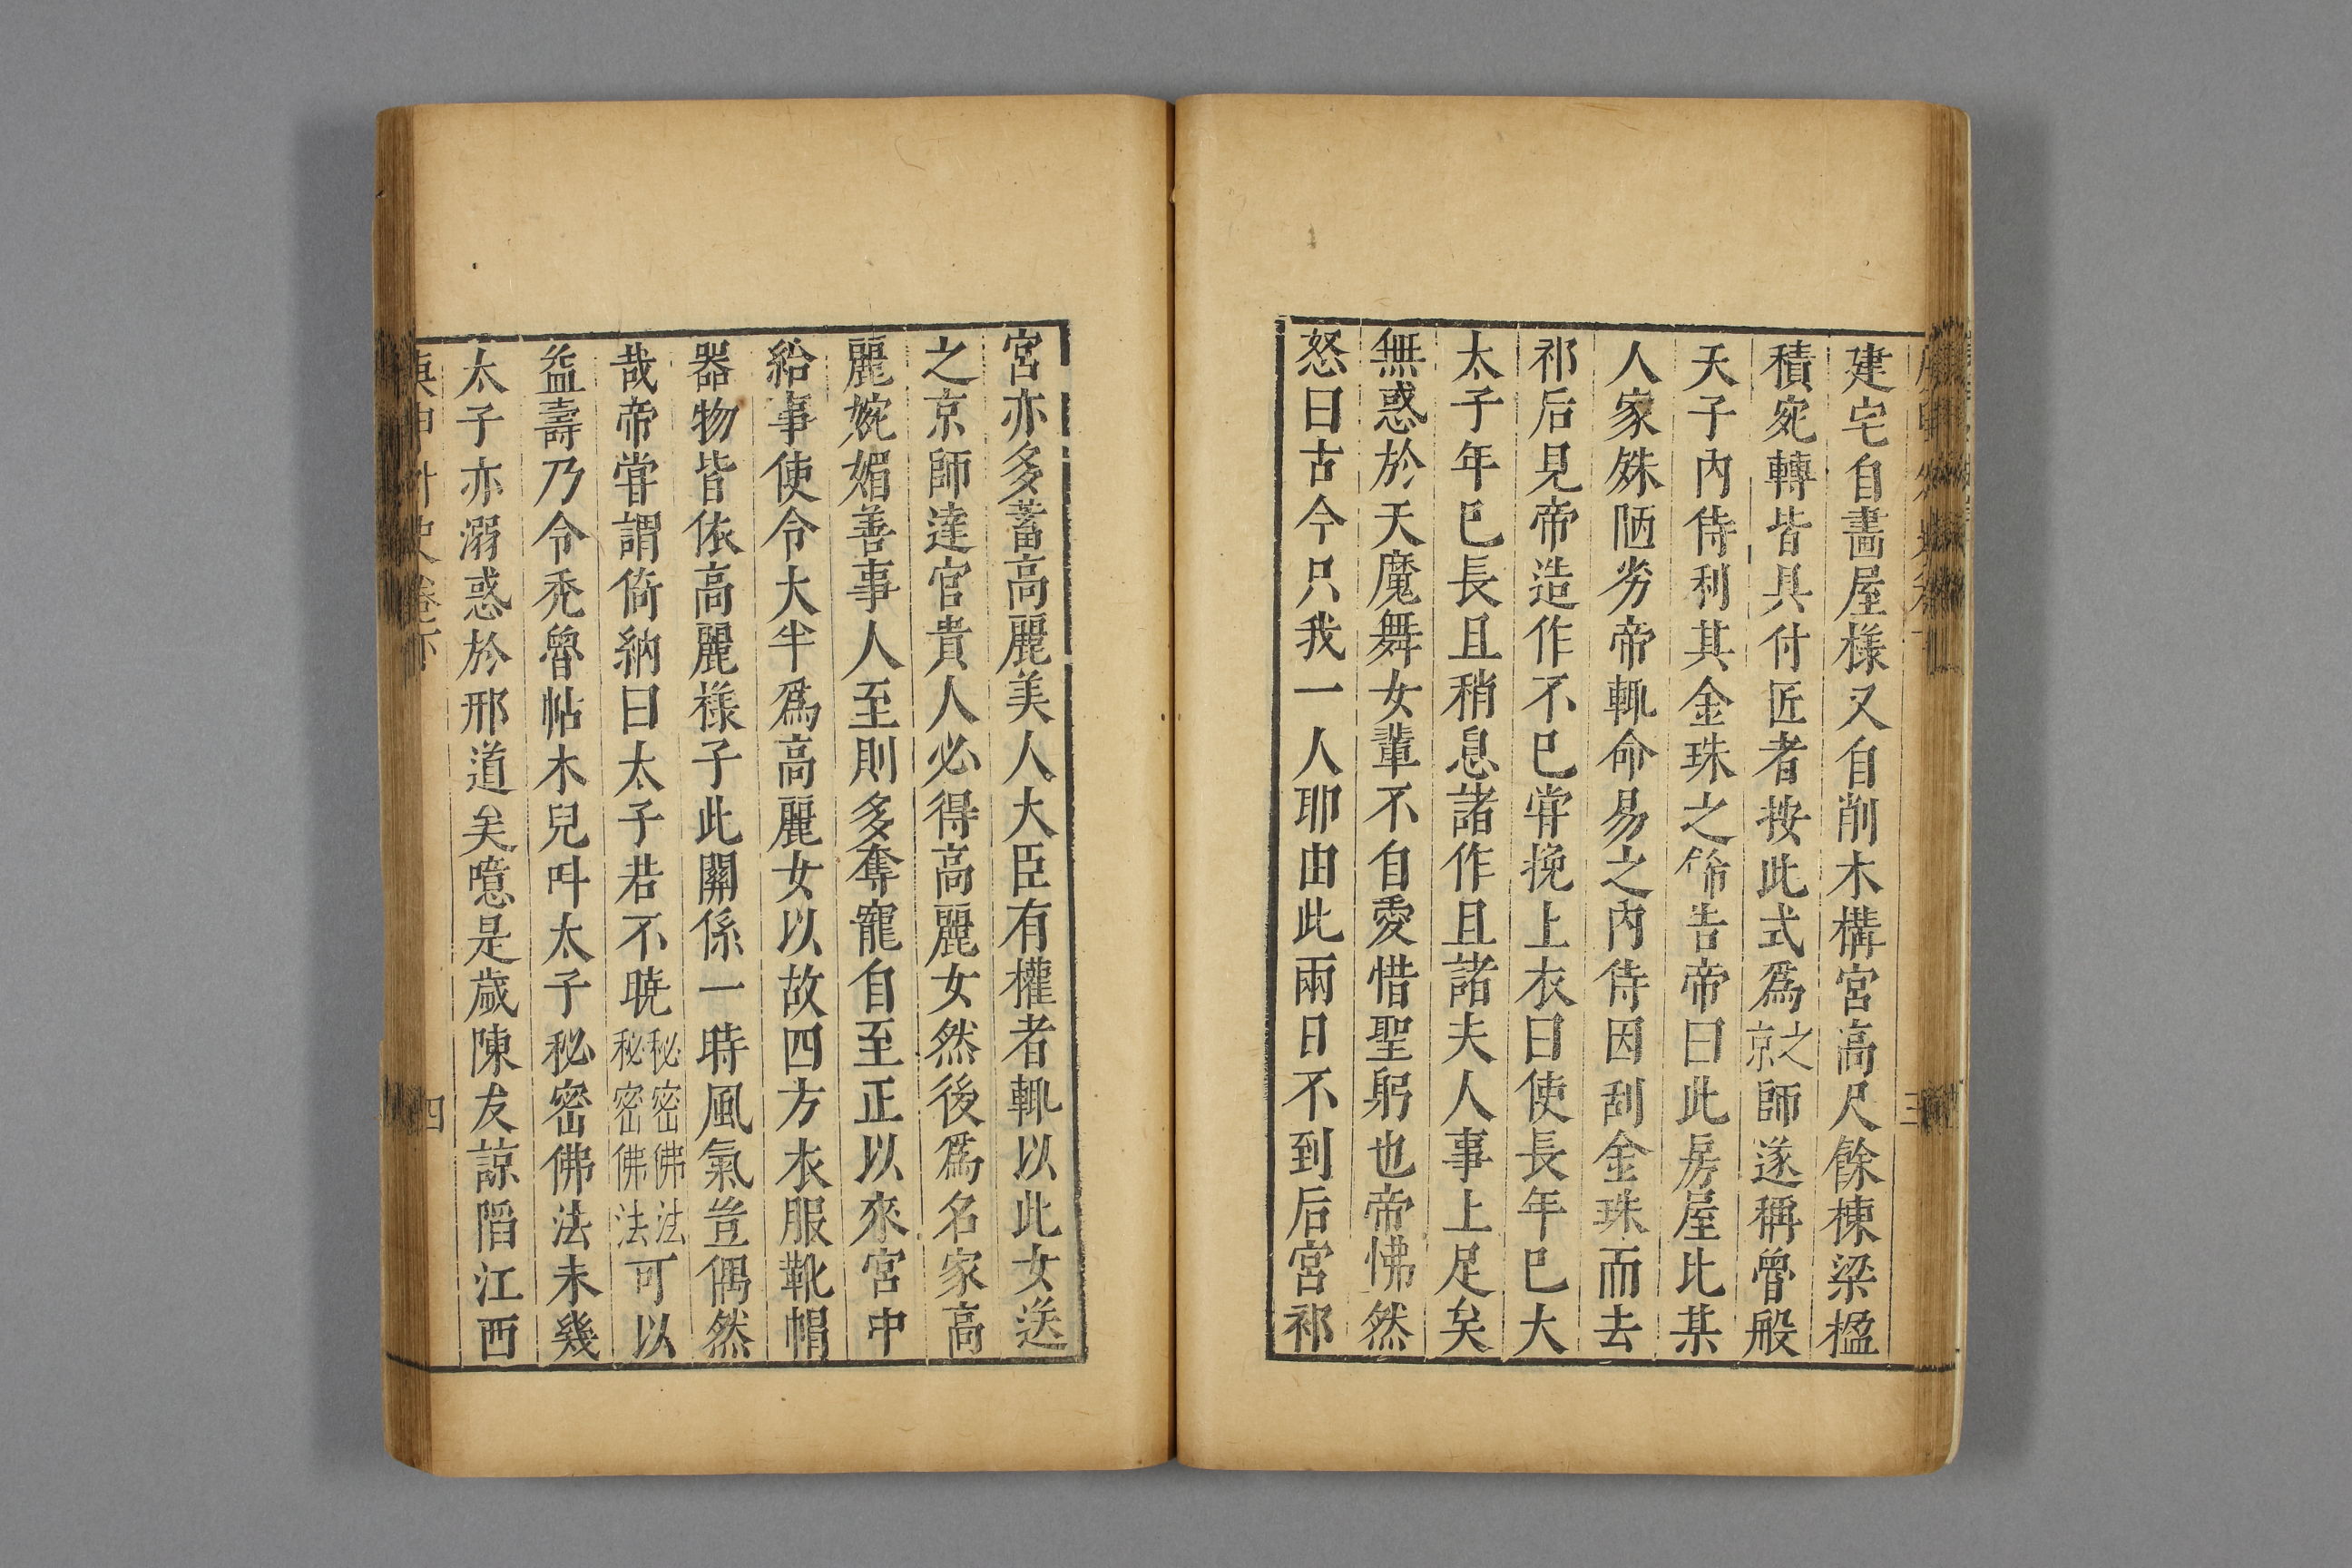 建宅自畫屋樣又自削木構宮高尺餘棟梁楹
積宛轉皆具付匠者按此式爲之京師遂稱魯般
天子內侍利其金珠之飾告帝曰此房屋比某
人家殊陋劣帝輒命易之內侍因刮金珠而去
祁后見帝造作不已甞挽上衣曰使長年已大
太子年已長且稍息諸作且諸夫人事上足矣
無惑於天魔舞女輩不自愛惜聖躬也帝怫然
怒曰古今只我一人耶由此兩日不到后宮祁
宮亦多蓄高麗美人大臣有權者輒以此女送
之京師達官貴人必得高麗女然後爲名家高
麗婉媚善事人至則多奪寵自至正以來宮中
給事使令大半爲高麗女以故四方衣服靴帽
器物皆依高麗樣子此關係一時風氣豈偶然
哉帝甞謂倚納曰太子若不曉秘密佛法秘密佛法可以
益壽乃令禿魯帖木兒呌太子秘密佛法未幾
太子亦溺惑於邢道矣噫是歲陳友諒陷江西
庚申外史卷下 四